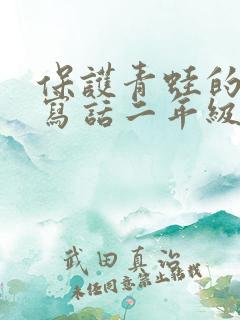 保護青蛙的
寫話二年級
武田真治
未经同意禁止转载